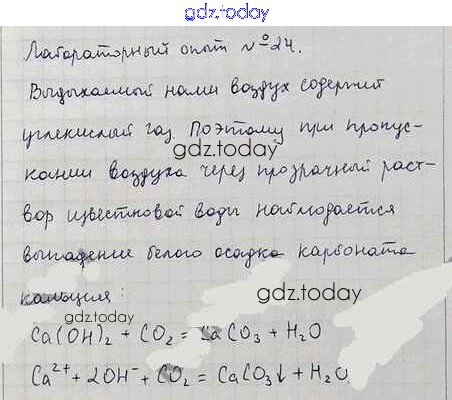 gdz.today
Лабораторный опыт №24.
Выдыхаемый нами воздух содержит
углекислый газ. Поэтому при пропус-
gdz.today
кании воздуха через прозрачный раст-
вор известковой воды наблюдается
выпадение белого осадка карбоната
кальция:
gdz.today
gdz.today
Ca(OH)₂ + CO₂ = CaCO₃ + H₂O
Ca²⁺ + 2OH⁻ + CO₂ = CaCO₃↓ + H₂O.